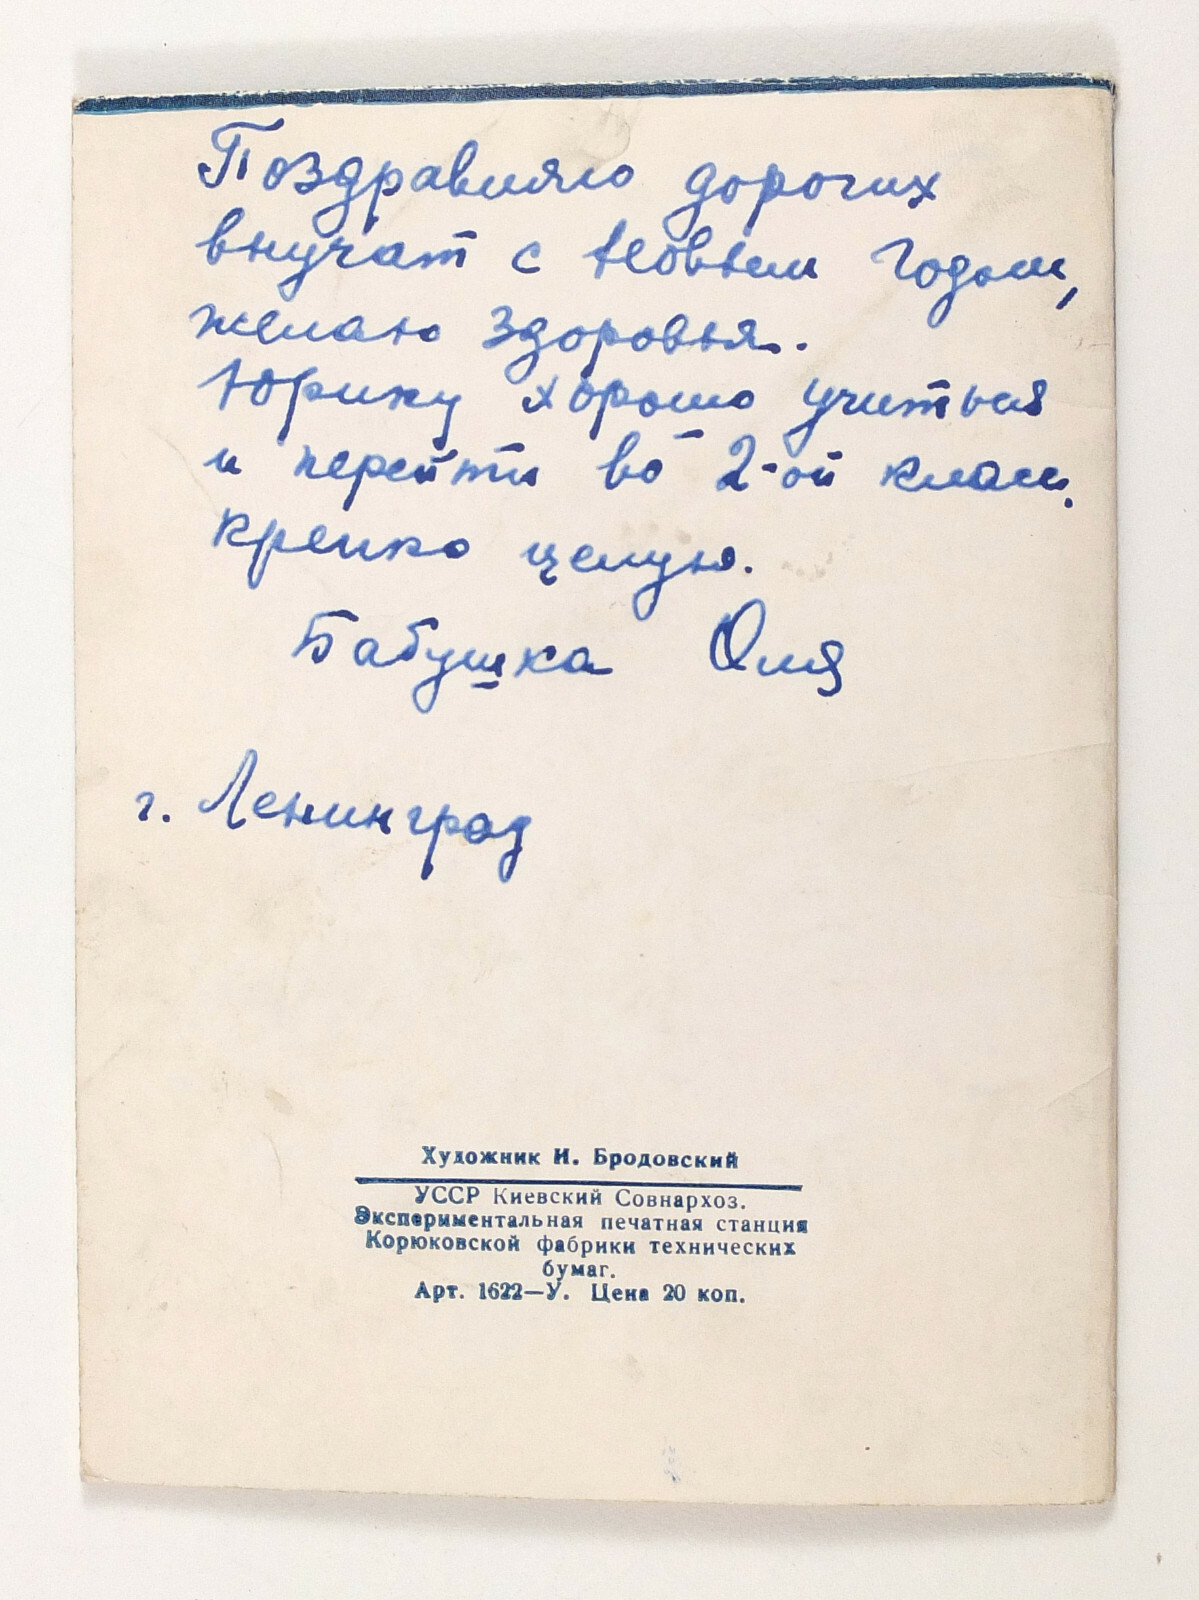 Поздравляю дорогих
внучат с Новым Годом,
желаю здоровья.
Юрику хорошо учиться
и перейти во 2-ой класс.
Крепко целую.
Бабушка Оля
г. Ленинград
Художник И. Бродовский
УССР Киевский Совнархоз.
Экспериментальная печатная станция
Корюковской фабрики технических
бумаг.
Арт. 1622—У. Цена 20 коп.